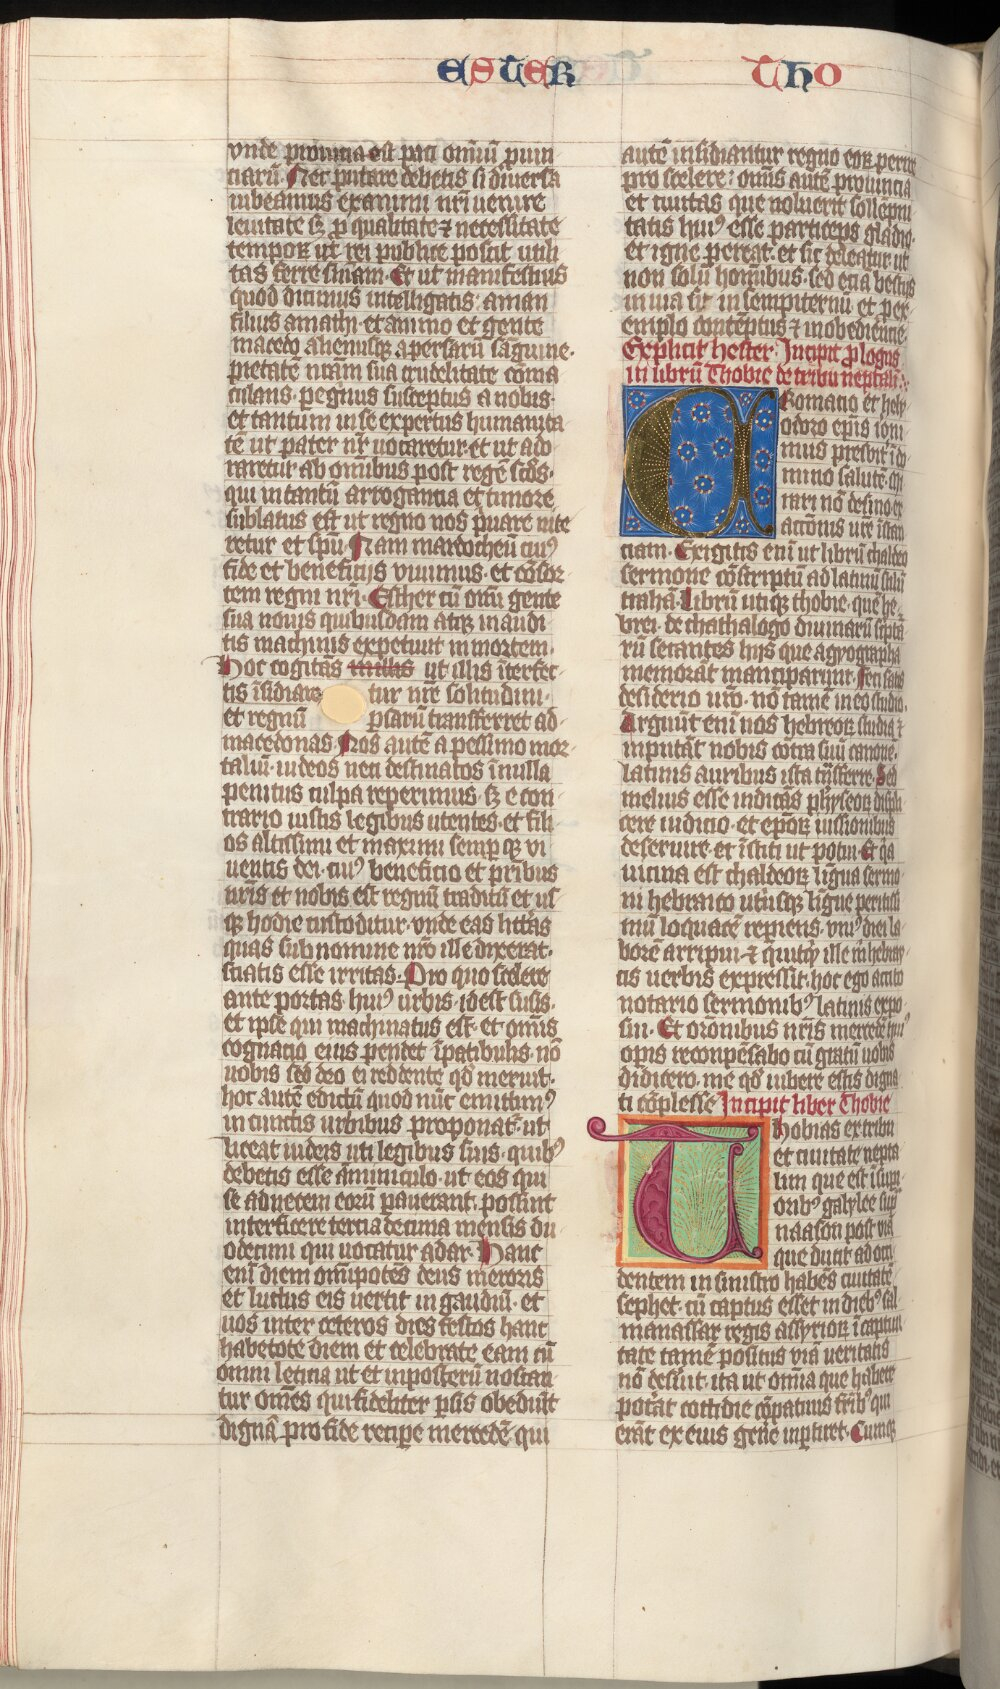 ESTER
THO
vnde prouincia est pati om̄iū ꝓuin
ciarū. Nec putare debetis si diuersa
iubeamus ex animi nr̄i uenire
leuitate sꝫ ꝓ qualitate ⁊ necessitate
tempoꝝ ut rei publice poscit utili
tas ferre s̄niam. Et ut manifestius
quod dicimus intelligatis. aman
filius amathi. et animo et gente
macedo alienusqꝫ a persarū sāguine.
pietatē nr̄am sua crudelitate cōma
culans. peregrinus susceptus a nobis.
et tantum in se expertus humanita
tē ut pater nr̄ uocaretur. et ut ado
raretur ab omnibus post regē scd̄s.
qui in tantū arrogancia et tumore
sublatus est ut regno nos p̄uare nite
retur et sp̄u. Nam mardocheū cuiꝰ
fide et beneficijs viuimus. et cōsor
tem regni nr̄i. Esther cū om̄i gente
sua nouis quibusdam atqꝫ inaudi
tis machinis expetiuit in mortem.
Hoc cogitās ut illis īterfec
tis īsidiare tur nr̄e solitudini.
et regnū ꝑsarū transferret ad
macedonas. Nos autē a pessimo mor
taliū. iudeos neci destinatos ī nulla
penitus culpa reperimus. sꝫ e con
trario iustis legibus utentes. et fili
os altissimi et maximi semp̄ qꝫ vi
uentis dei. cuiꝰ beneficio et pr̄ibus
nr̄is et nobis est regnū traditū et us
qꝫ hodie custoditur. vnde eas litt̄as
quas sub nomine nr̄o ille direxerat.
sciatis esse irritas. Pro quo scelere
ante portas huiꝰ urbis. id est susis.
et ipse qui machinatus est. et om̄is
cognatio eius pendet ī patibulis. nō
nobis sed deo ei reddente qd̄ meruit.
hoc autē edictū quod nūc mittimꝰ
in cunctis urbibus proponatᷣ. ut
liceat iudeis uti legibus suis. quibꝰ
debetis esse aminiculo. ut eos qui
se ad necem eorū pauerant. possint
interficere tercia decima mensis du
odecimi qui uocatur adar. Hanc
enī diem om̄ipotēs deus meroris
et luctus eis uertit in gaudiū. et
uos inter ceteros dies festos hanc
habetote diem et celebrate eam cū
omni leticia ut et in posterū noscan
tur om̄es qui fideliter ꝑsis obediūt
dignā pro fide recipe mercedē qui
autē insidiantur regno eoꝝ perire
pro scelere. om̄is autē prouincia
et ciuitas que noluerit sollēpni
tatis huiꝰ esse particeps gladio.
et igne pereat. et sic deleatur ut
non solū hominibus. sed etiā bestijs
in uia sit in sempiternū et pro ex
emplo contēptus ⁊ inobediencie.
Explicit hester. Incipit ꝓlogus
in librū Thobie de tribu neptali.
Cromatio et hely
odoro ep̄is iero
nimus presbit̄ ī do
mino salutē. mi
rari nō desino ex
actōnis vr̄e īstan
ciam. Exigitis enī ut librū chaldeo
sermone cōscriptū ad latinū stilū
traha. Librū utiqꝫ thobie. quē he
brei. de chathalogo diuinarū sc̄ptu
rū secantes hijs que agyographa
memorāt manciparunt. Feci satis
desiderio vr̄o. nō tamē meo studio.
Arguūt enī nos hebreoꝝ studia ⁊
inputāt nobis cōtra suū canonē.
latinis auribus ista trāsferre. Sed
melius esse iudicās phyſeoꝝ displi
cere iudicio. et ep̄oꝝ iussionibus
deseruire. et īstiti ut potui. Et q̄a
uicina est chaldeoꝝ līgua sermo
ni hebraico utriusqꝫ līgue peritissi
mū loquacē repiens. vniꝰ diei la
borē arripui. ⁊ quitqͥd ille m̄ hebray
cis uerbis expressit. hoc ego accito
notario sermonibꝰ latinis expo
sui. Et or̄onibus nr̄is mercedē huiꝰ
opis reconpēsabo cū gratū uobis
didicero. me qd̄ iubere estis digna
ti cōplesse Incipit liber Thobie
Thobias ex tribu
et ciuitate nepta
lim que est ī supi
oribꝰ galylee sup̄
naason post viā
que ducit ad occi
dentem in sinistro habēs ciuitatē
sephet. cū captus esset in diebꝰ sal
manassar regis assyrioꝝ ī captiui
tate tamē positus viā ueritatis
nō desiuit. ita ut om̄ia que habere
poterat cottidie cōpatiuis fr̄ibꝰ qui
erāt ex eius gen̄e inꝑtiret. Cumqꝫ